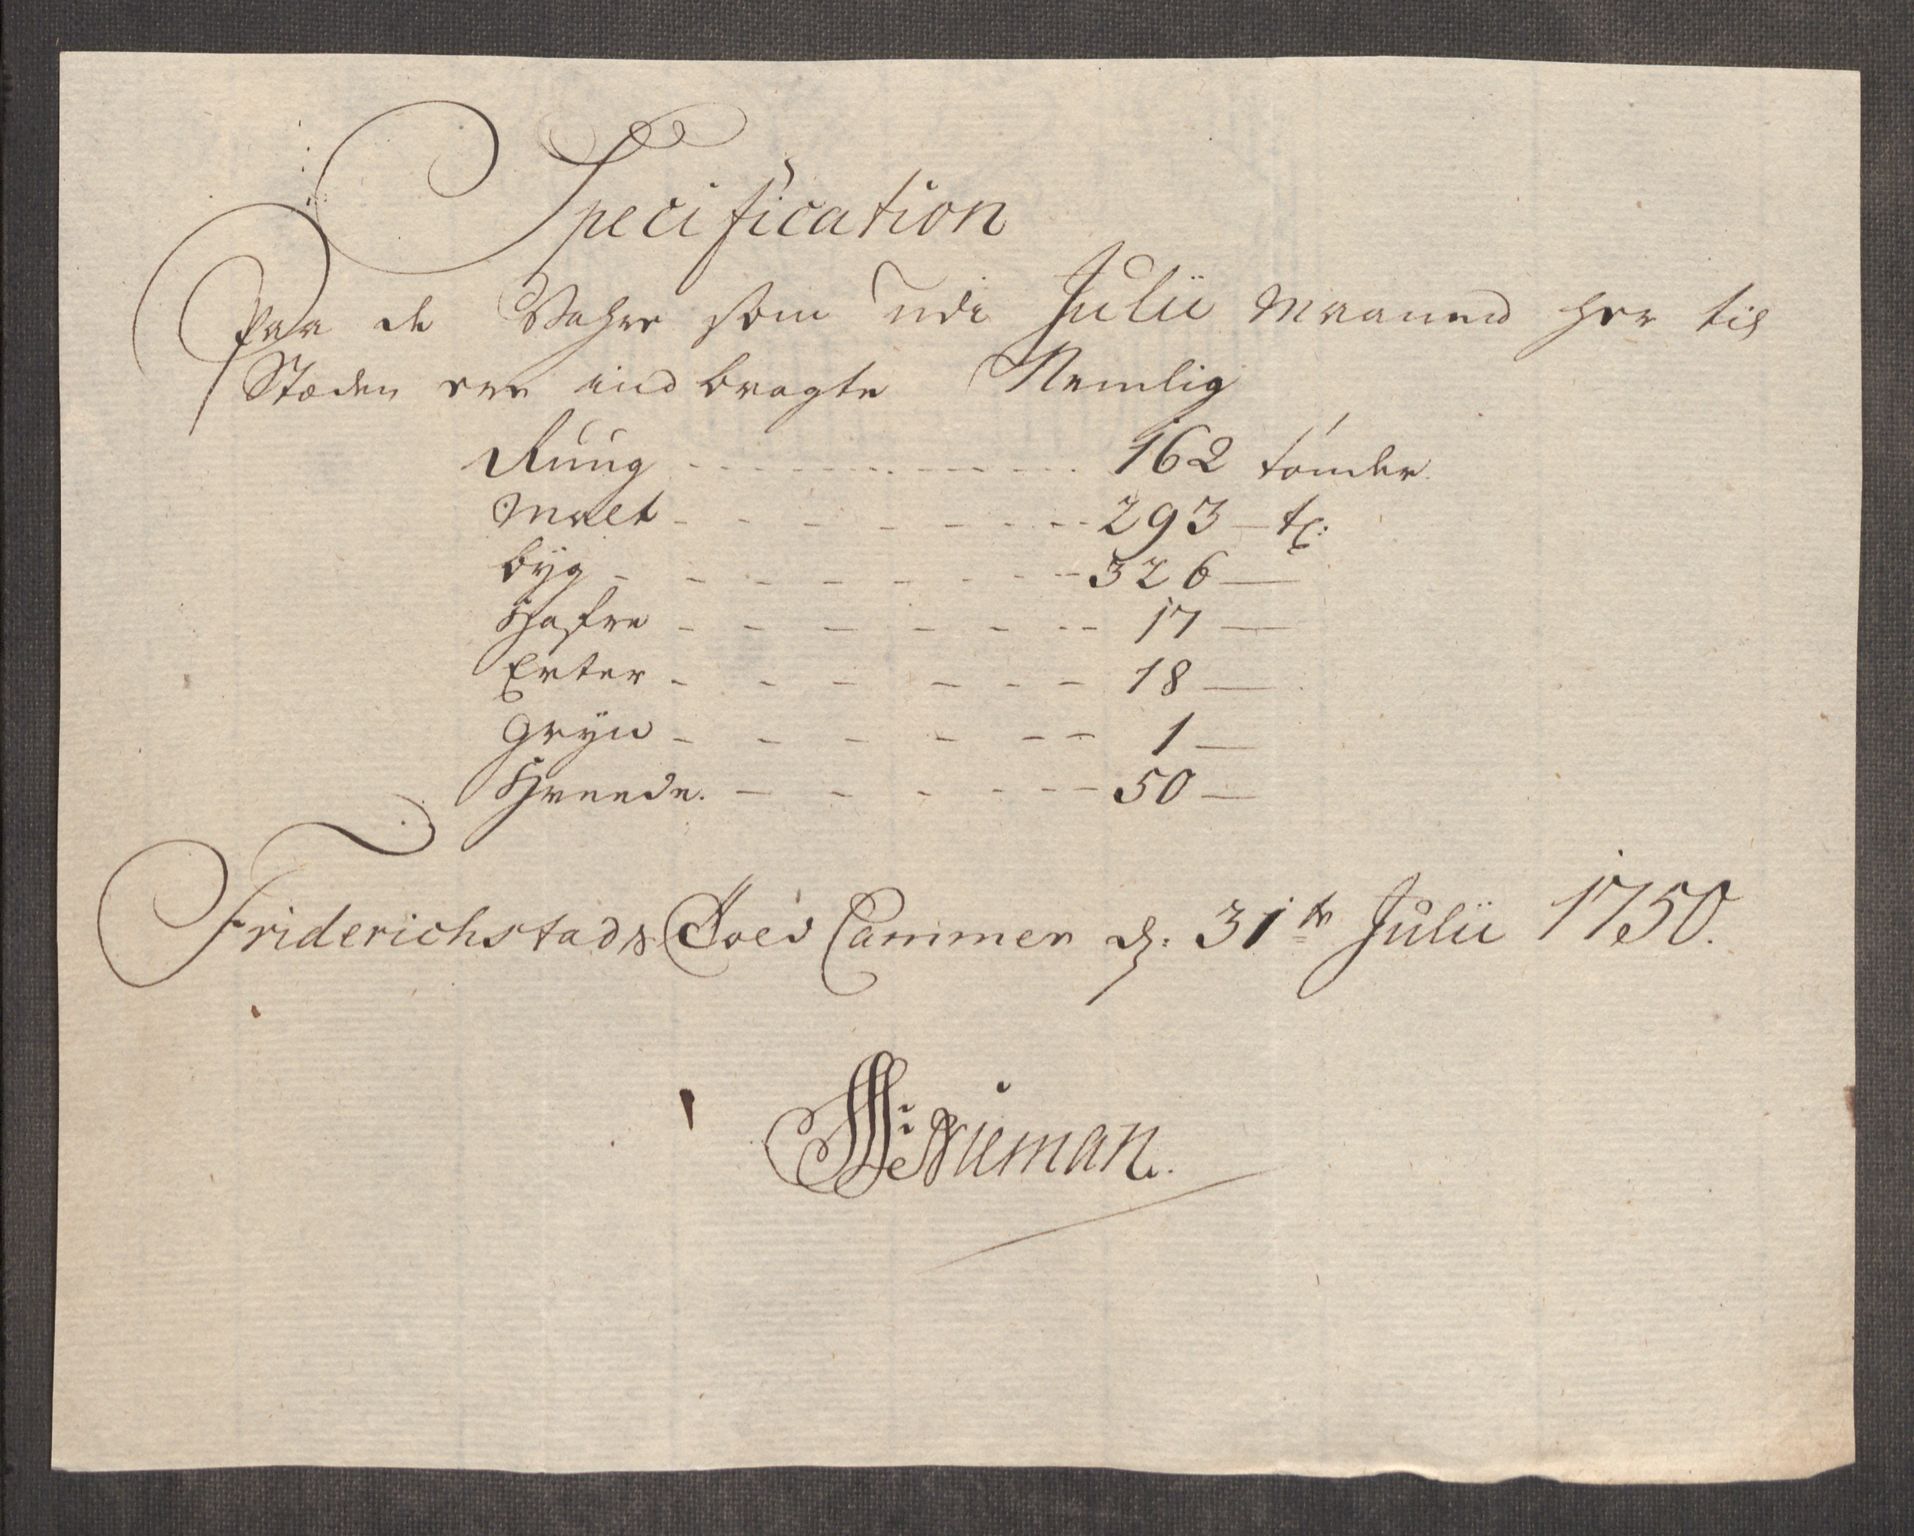 Specification
Paa de Vahre som udi Julii Maaned her til
Stæden ere indbragte Nemlig
Rúúg - - - - - - - - - 162 tønder
Malt - - - - - - - - - 293 — tr:
byg - - - - - - - - - 326 —
Hafre - - - - - - - - - 17 —
Erter - - - - - - - - - 18 —
Gryn - - - - - - - - - 1 —
Hveede. - - - - - - - - - 50 —
Friderichstads Toel Cammer d: 31te Julii 1750.